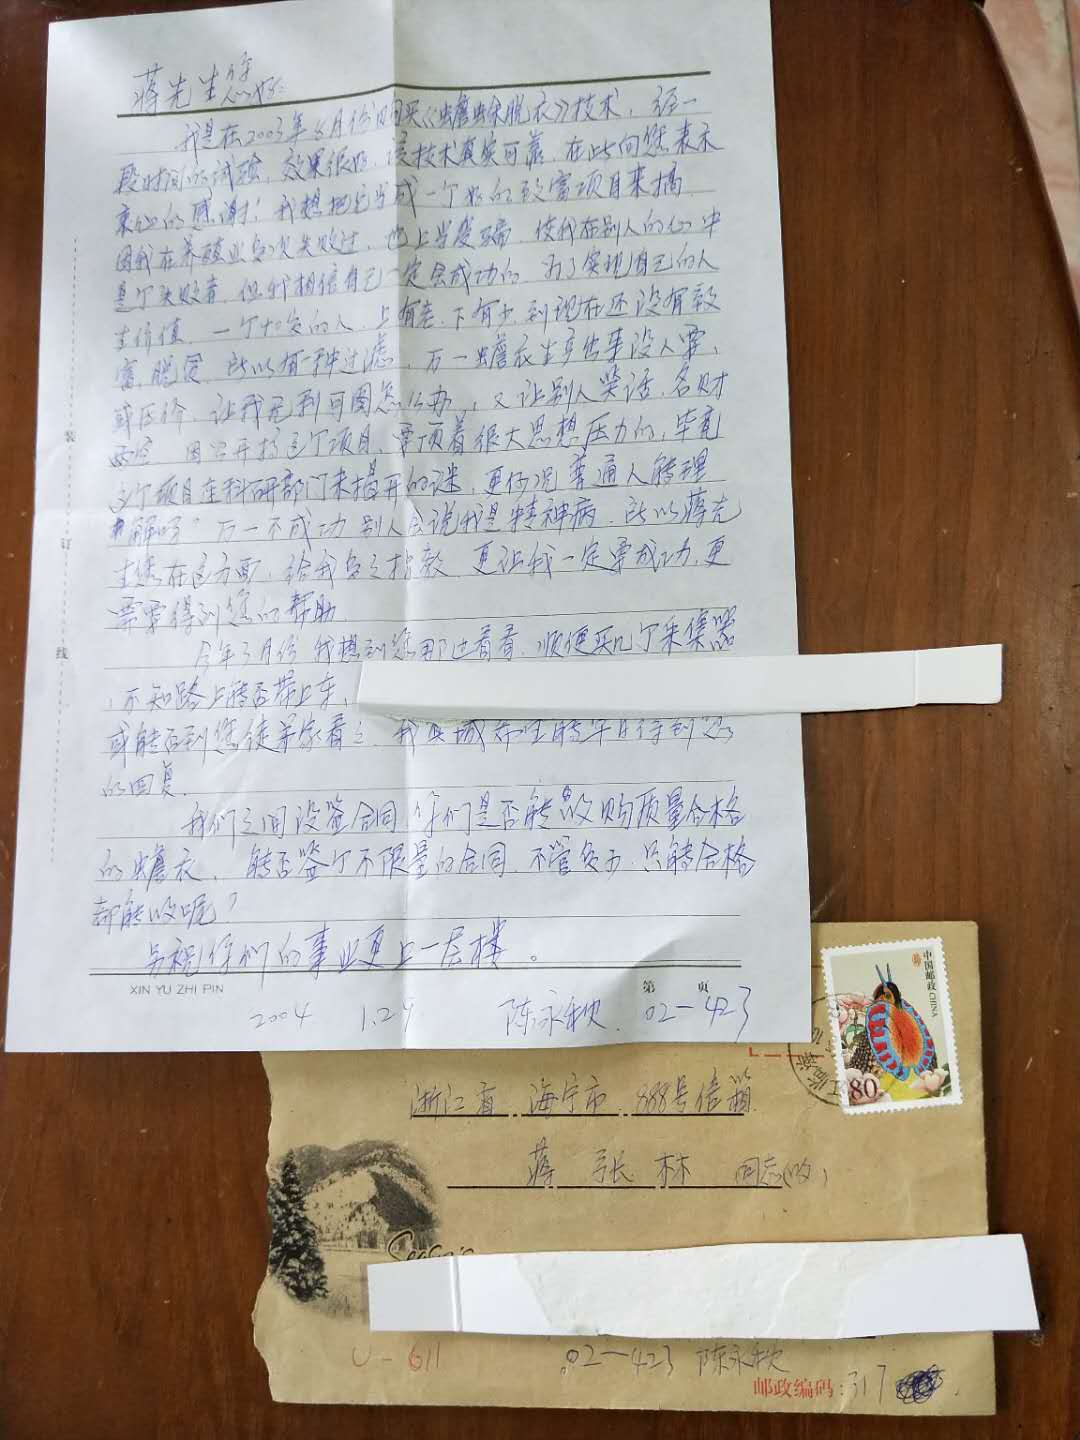 蒋先生您好:
我是在2003年8月份购买《蟾蜍脱衣》技术，经一
段时间的试验，效果很好，该技术真实可靠，在此向您表示
衷心的感谢！我想把它当成一个好的致富项目来搞
因我在养殖业多次失败过，也上当受骗，使我在别人的心中
是个失败者，但我相信自己一定会成功的，为了实现自己的人
生价值，一个 岁的人，上有老，下有少，到现在还没有致
富，脱贫，所以有一种过虑，万一蟾衣生产出来没人要，
或压价，让我无利可图怎么办，又让别人笑话，名财
两空，因 开搞这个项目，要顶着很大思想压力的，毕竟
这个项目在科研部门未揭开的谜，更何况普通人能理
解吗？万一不成功别人会说我是精神病，所以蒋先
生您在这方面，给我多多指教，更让我一定要成功，更
需要得到您的帮助
今年3月份我想到您那边看看，顺便买几个采集器
，不知路上能否带上车，
或能否到您徒弟家看看，我 能早日得到您
的回复。
我们之间没签合同你们是否能收购质量合格
的蟾衣，能否签个不限量的合同，不管多少，只能合格
都能收呢？
另祝你们的事业更上一层楼。
XIN YU ZHI PIN
第 页
2004 1.29 陈永秋 02-423
装
订
线
中国邮政 CHINA
80
浙江省 海宁市 888号信箱
蒋 张 林 同志(收)
U-611
02-423 陈永秋
邮政编码: 317